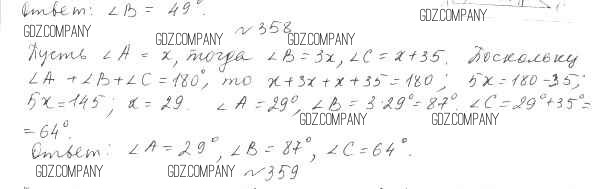 Ответ: ∠B = 49°.
GDZ.COMPANY
GDZ.COMPANY
№358
GDZ.COMPANY
GDZ.COMPANY
Пусть ∠A = x, тогда ∠B = 3x, ∠C = x+35. Поскольку
∠A + ∠B + ∠C = 180°, то x+3x+x+35=180; 5x=180-35;
5x=145; x=29. ∠A=29°, ∠B=3·29°=87°. ∠C=29°+35°=
GDZ.COMPANY
GDZ.COMPANY
=64°.
Ответ: ∠A=29°, ∠B=87°, ∠C=64°.
GDZ.COMPANY
GDZ.COMPANY
№359